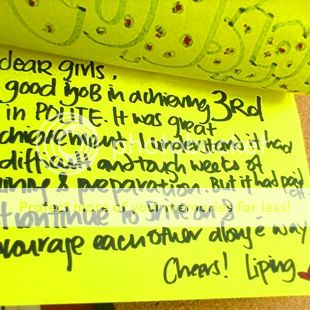 dear girls,
good job in achieving 3RD
in POLITE. It was great
achievement. I understand it had
difficult and tough weeks of
& preparation. But it had paid
continue to shine on &
courage each other along e way
Cheers! Liping